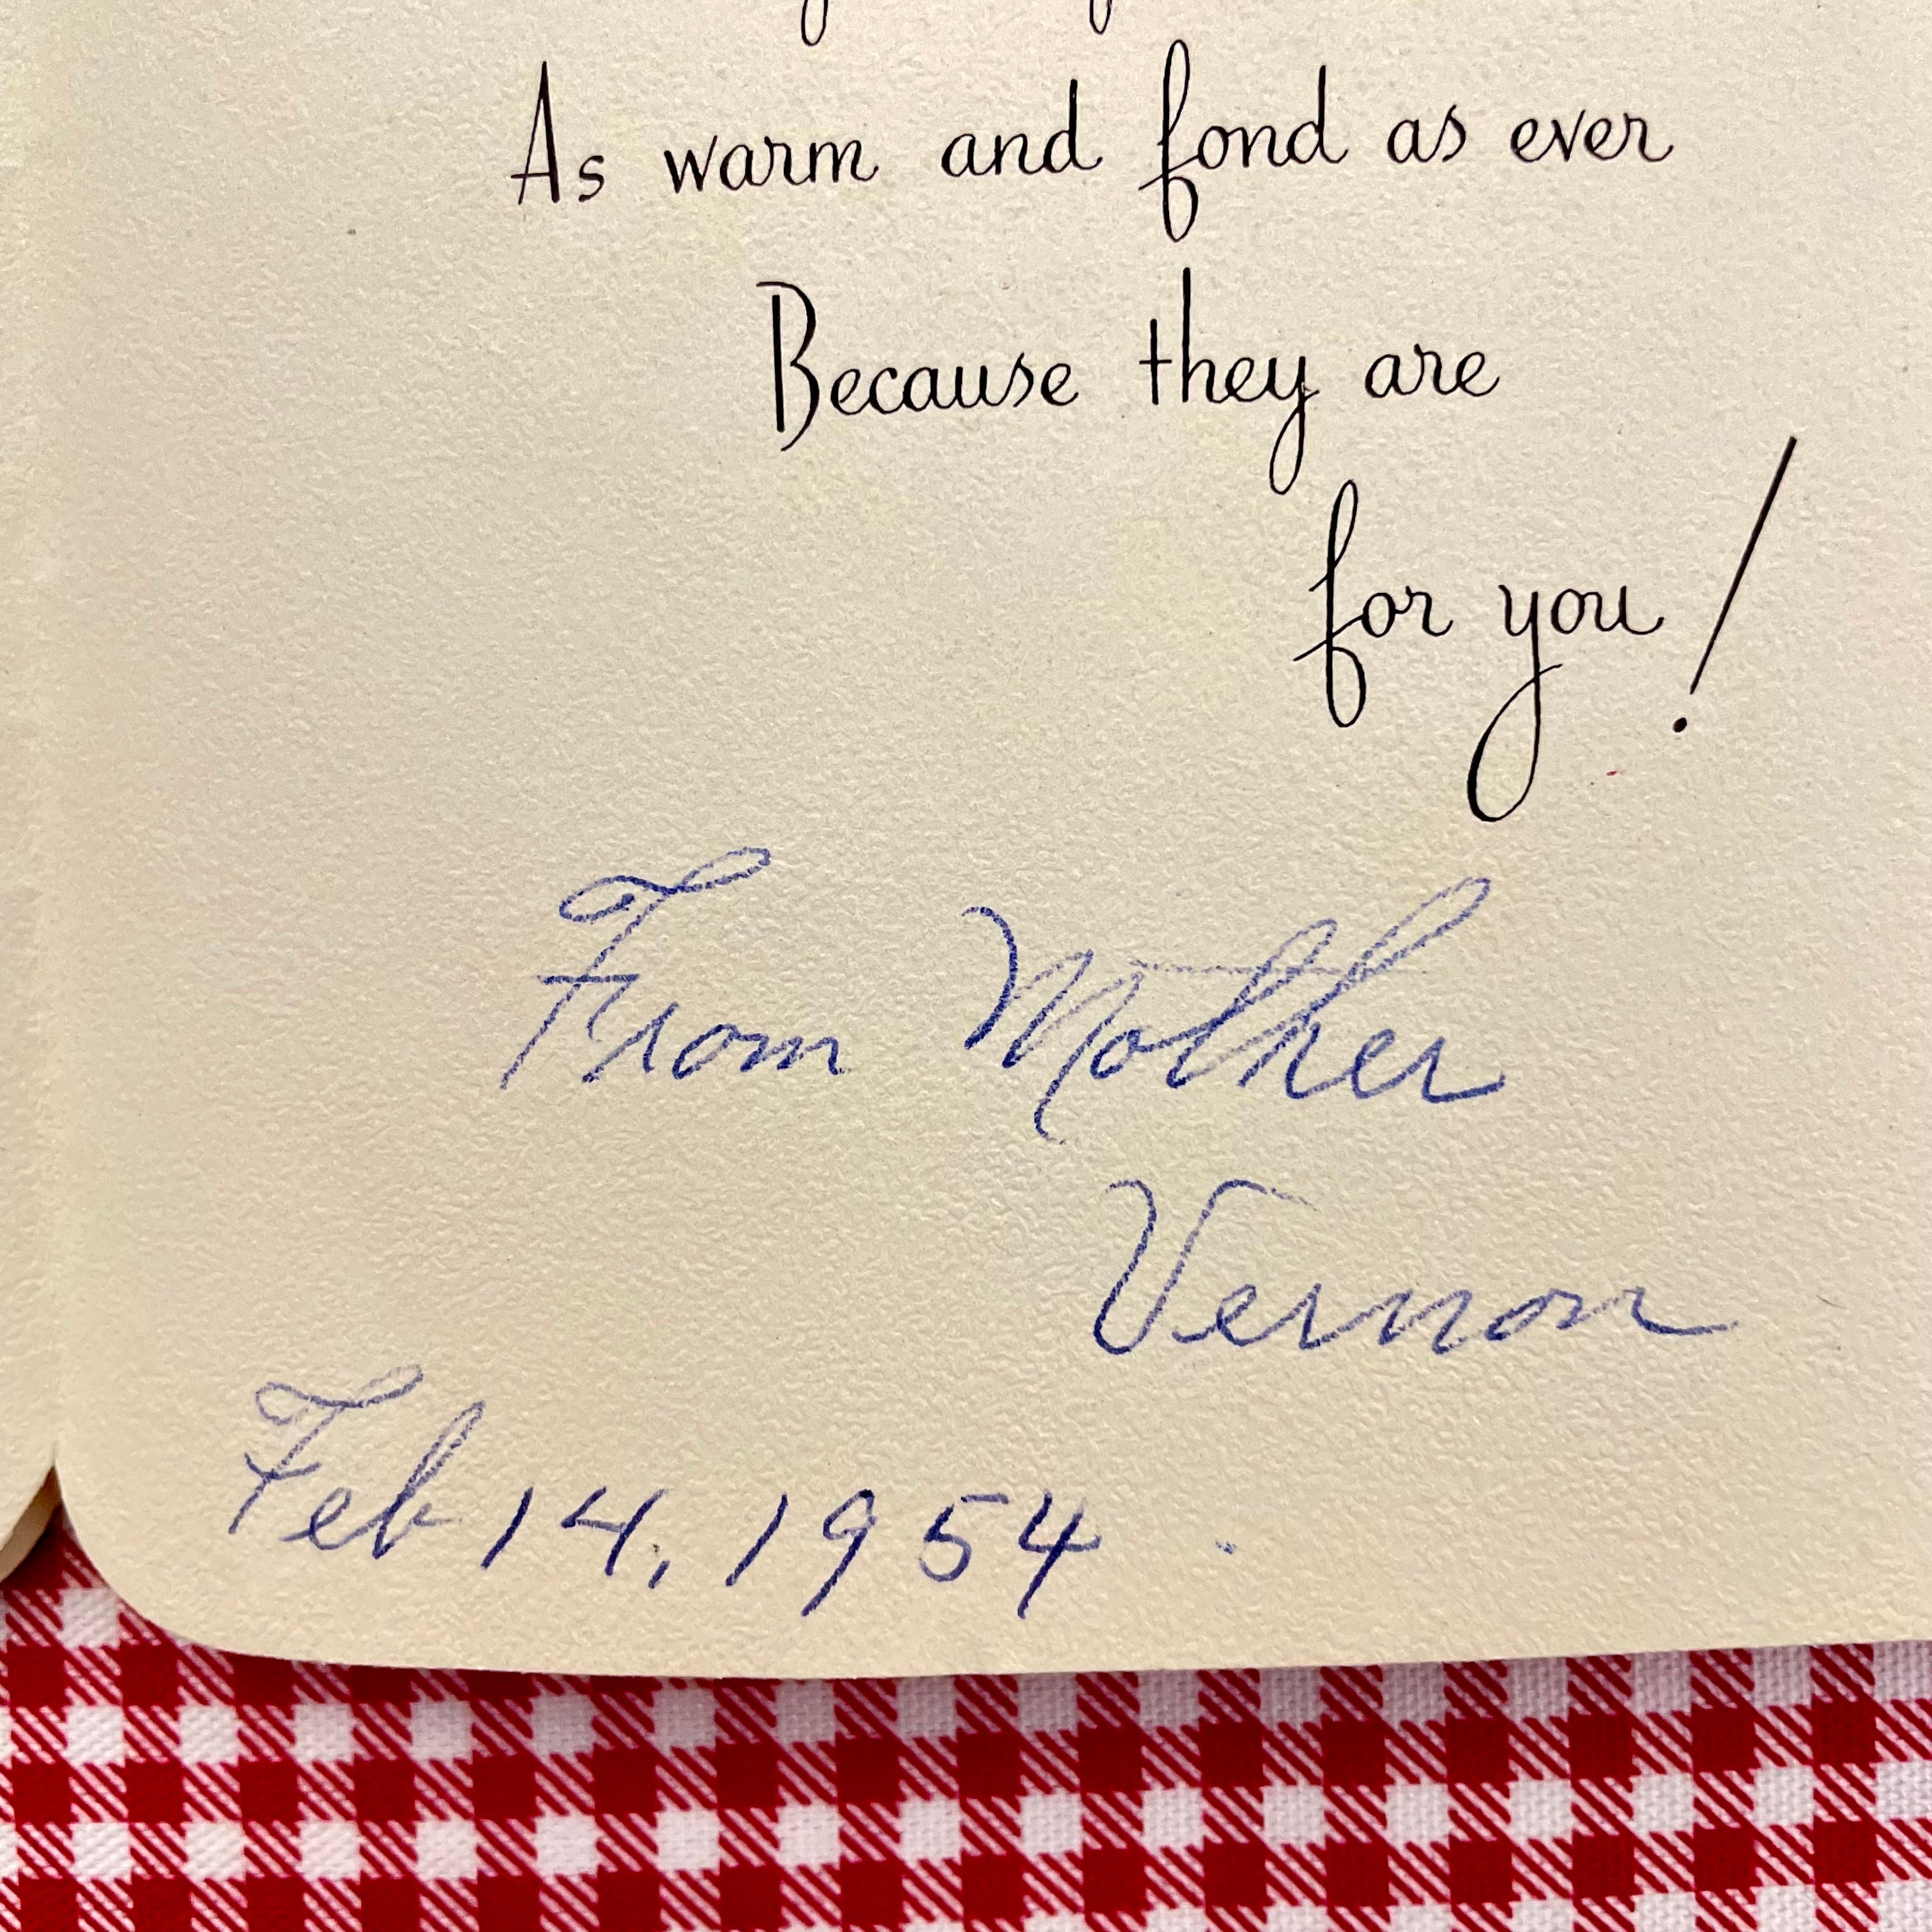 As warm and fond as ever
Because they are
for you!
From Mother
Vernon
Feb 14, 1954